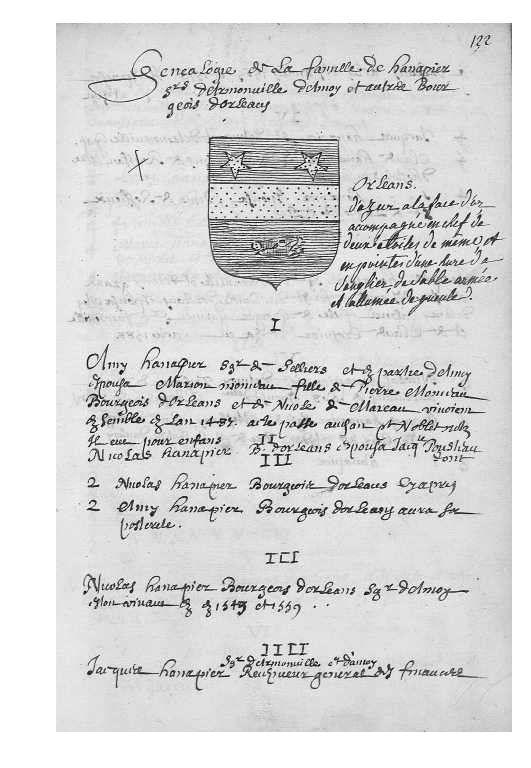 132
Genealogie de La famille de hanapier
srs dArmonville dAmoy et autres Bour
geois dorleans
Orleans.
dazur a la face d'or
acompagné en chef de
deux etoiles de meme et
en pointe d'une hure de
sanglier de sable armée
et allumée de gueule.
I
Amy hanapier Sgr de Selliers et en partie dAmoy
Espousa Marion moineau fille de Pierre Moineau
Bourgeois dOrleans et de Nicole de Mareau vivoient
Ensemble en Lan
Il eut pour enfans
II
Nicolas hanapier B. dorleans Espousa Jacqte Rousseau
dont
III
2 Nicolas hanapier Bourgeois dorleans Cy apres
2 Amy hanapier Bourgeois dorleans aura sa
posterité.
III
Nicolas hanapier Bourgeois dorleans Sgr dAmoy
estoit vivant en et 1559
IIII
Sgr dArmonville et damoy
Jacques hanapier Receveur general des finances